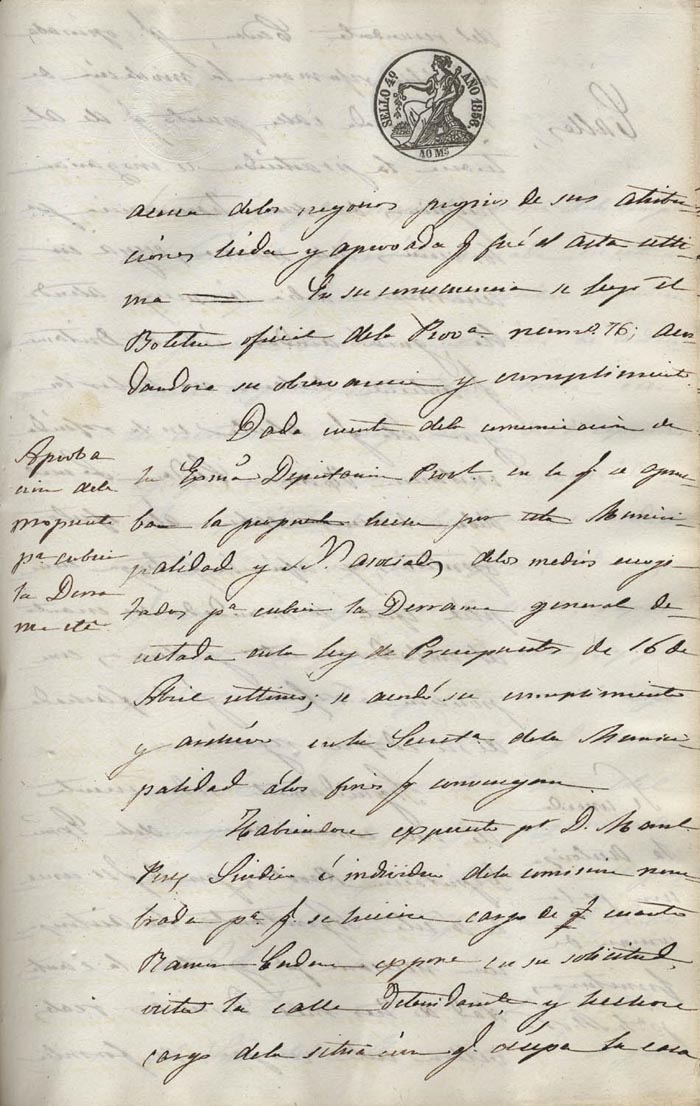 SELLO 4º AÑO 1856.
40 Ms
acerca delos negocios propios de sus atribu-
ciones leida y aprovada q.e fué el acta ulti-
ma — En su consecuencia se leyó el
Boletin oficial dela Prov.a num.o 76; acor
dandose su observancia y cumplimiento
Dada cuenta dela comunicacion de
la Exma Diputacion Provl. en la q.e se aprue
ban la propuesta hecha por esta Munici-
palidad y asociados delos medios escogi-
tados p.a cubrir la Derrama general de-
cretada en la Ley de Presupuestos de 16 de
Abril ultimo; se acordó su cumplimiento
y archivo en la Secret.a dela Munici-
palidad álos fines q.e convengan
Aproba
cion dela
propuesta
p.a cubrir
la Derra
ma etc.a
Habiendose expuesto p.r D. Manuel
Sindico é individuo dela comision nom-
brada p.a q.e se hiciese cargo de q.e cuanto
Ramon expone en su solicitud,
vista la calle detenidamte. y hechose
cargo dela situacion q.e ocupa la casa